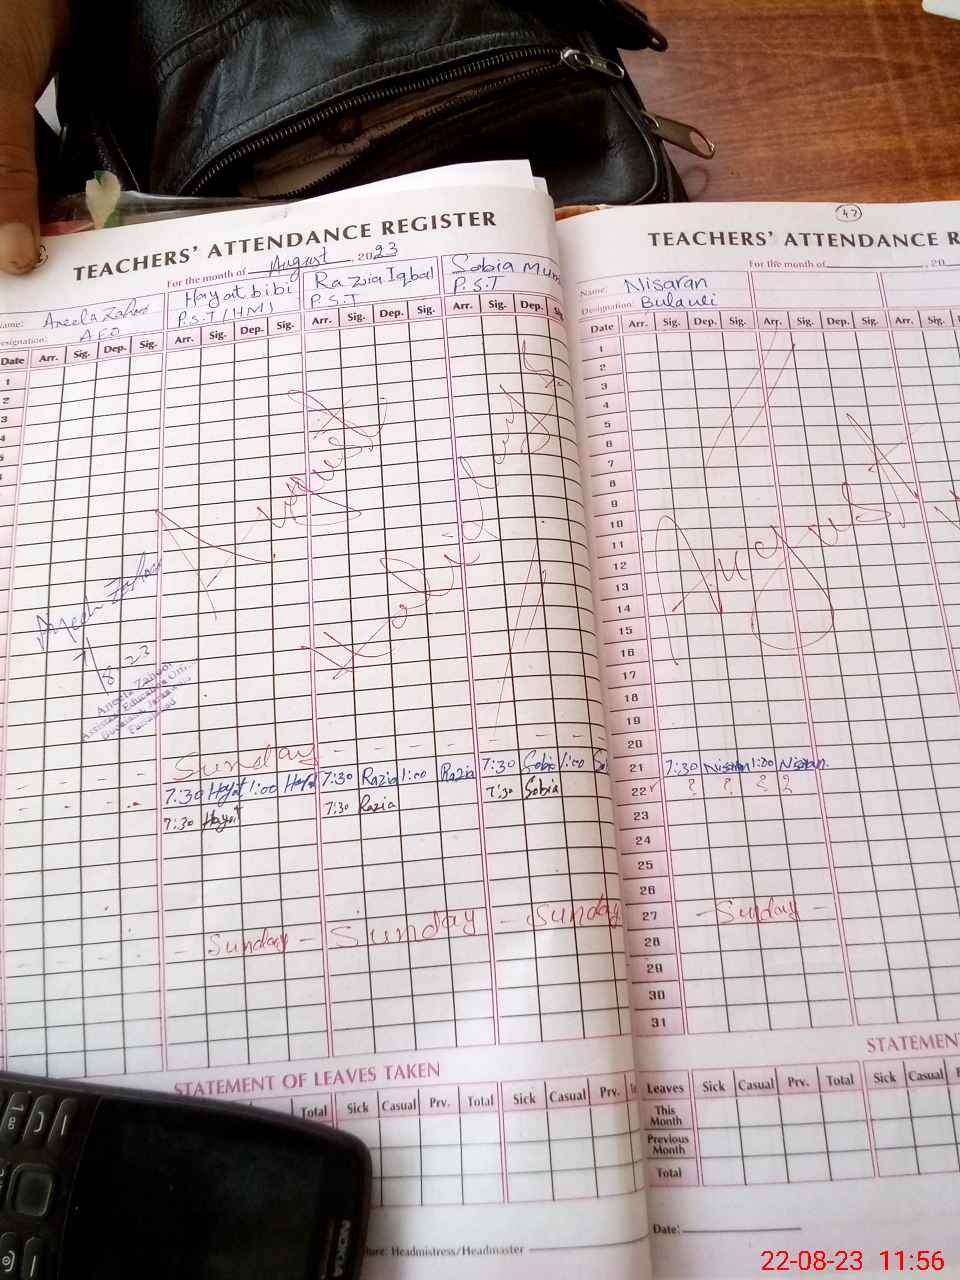 TEACHERS' ATTENDANCE REGISTER
For the month of August, 2023
Name: Aneela Zahoor Hayat bibi Razia Iqbal Sobia
Designation: AEO P.S.T/HM P.S.T P.S.T
Date Arr. Sig. Dep. Sig. Arr. Sig. Dep. Sig. Arr. Sig. Dep. Sig. Arr. Sig. Dep. Sig.
1
2
3
4
5
August
Holidays
8 23
Aneela Zahoor
Sunday
7:30 Hayat 1:00 Hayat 7:30 Razia 1:00 Razia 7:30 Sobia 1:00
7:30 Hayat 7:30 Razia 7:30 Sobia
- Sunday - Sunday - Sunday
STATEMENT OF LEAVES TAKEN
Total Sick Casual Prv. Total Sick Casual Prv.
Headmistress/Headmaster
NOKIA
47
TEACHERS' ATTENDANCE R
For the month of , 20
Name: Nisaran
Designation: Bulawi
Date Arr. Sig. Dep. Sig. Arr. Sig. Dep. Sig. Arr. Sig.
1
2
3
4
5
6
7
8
9
10
11
12
13
14
15
16
17
18
19
20
21 7:30 Nisaran 1:00 Nisaran
22 ? ? ? ?
23
24
25
26
27 - Sunday -
28
29
30
31
August
STATEMENT
Leaves Sick Casual Prv. Total Sick Casual
This Month
Previous Month
Total
Date:
22-08-23 11:56